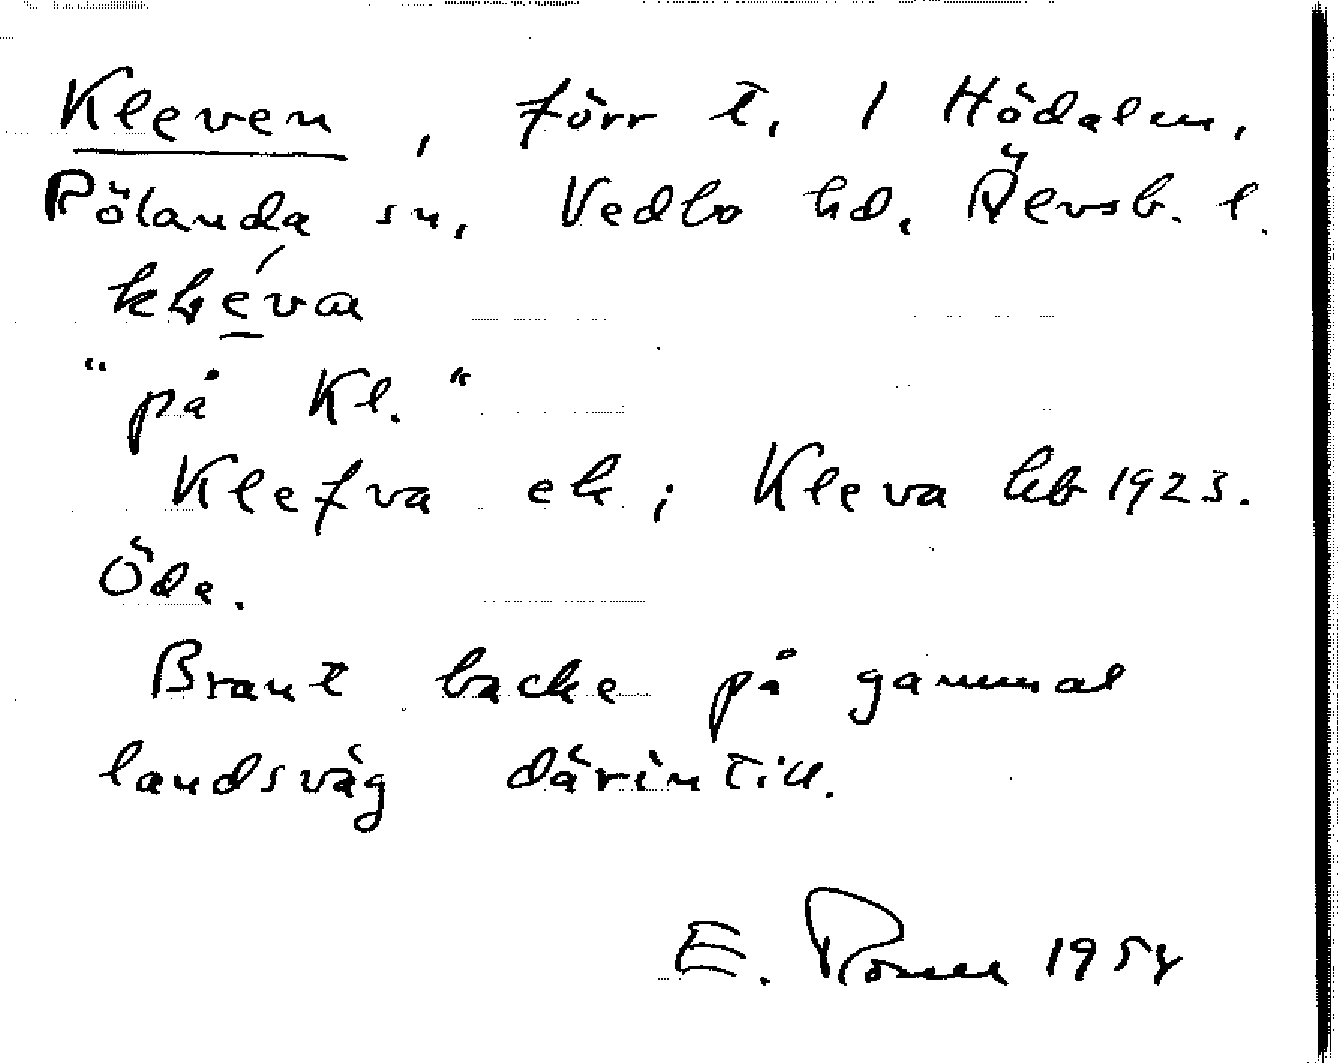 Kleven, förr t. 1 Hödalen,
Rölanda sn, Vedbo hd. Älvsb. l.
"på Kl."
Klefva ek; Kleva hb 1923.
Öde.
Brant backe på gammal
landsväg därintill.
E. 1954